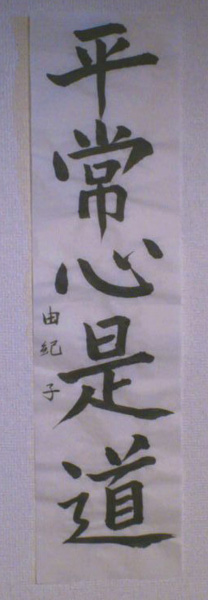 平常心是道
由紀子